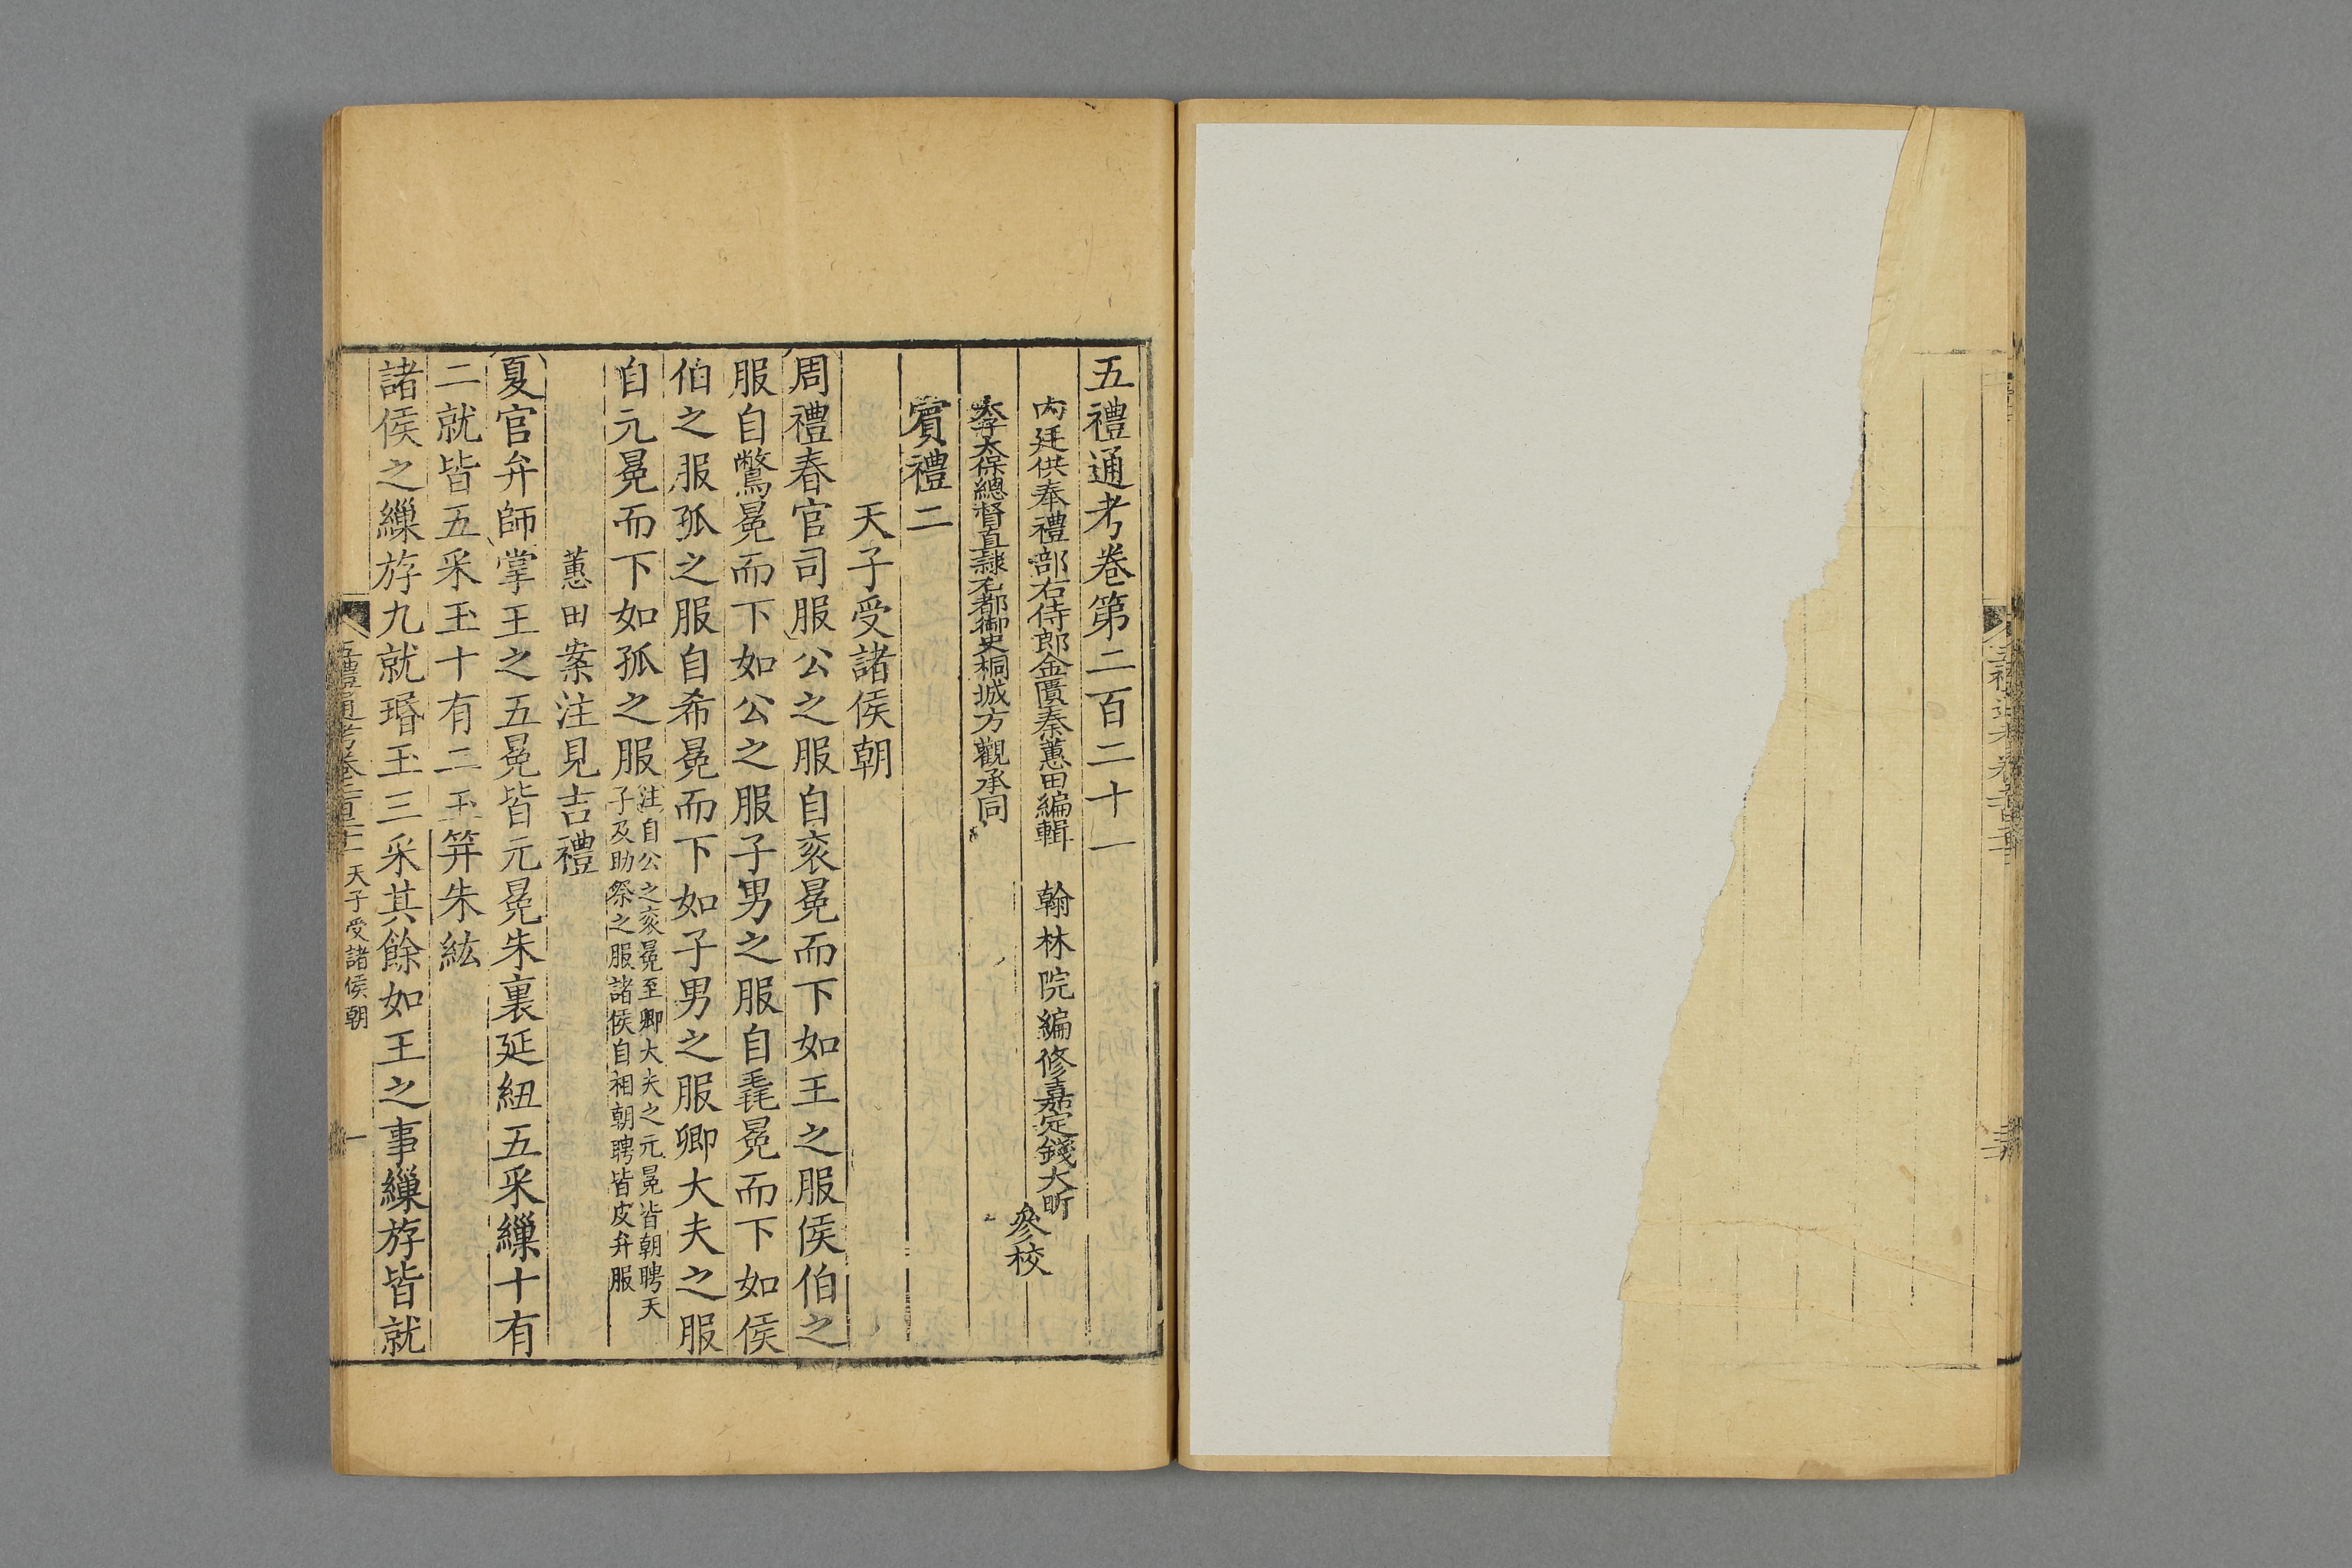 五禮通考卷第二百二十一
內廷供奉禮部右侍郎金匱秦蕙田編輯　翰林院編修嘉定錢大昕
太子太保總督直隸右都御史桐城方觀承同
參校
賓禮二
天子受諸侯朝
周禮春官司服公之服自衮冕而下如王之服侯伯之
服自鷩冕而下如公之服子男之服自毳冕而下如侯
伯之服孤之服自希冕而下如子男之服卿大夫之服
自元冕而下如孤之服注自公之衮冕至卿大夫之元冕皆朝聘天
子及助祭之服諸侯自相朝聘皆皮弁服
蕙田案注見吉禮
夏官弁師掌王之五冕皆元冕朱裏延紐五采繅十有
二就皆五采玉十有二玉笄朱紘
諸侯之繅斿九就瑉玉三采其餘如王之事繅斿皆就
五禮通考卷二百二十一　天子受諸侯朝　一